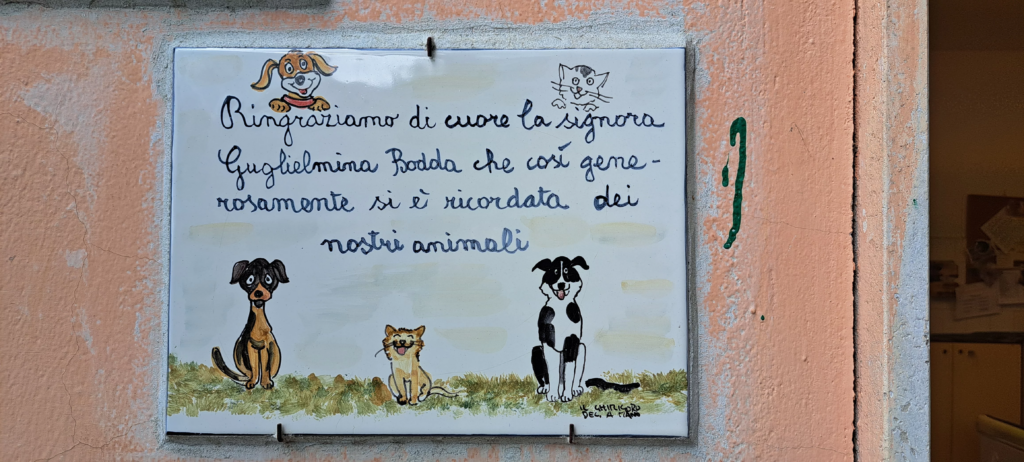 Ringraziamo di cuore la signora
Guglielmina Bodda che così gene-
rosamente si è ricordata dei
nostri animali
IL
DEL